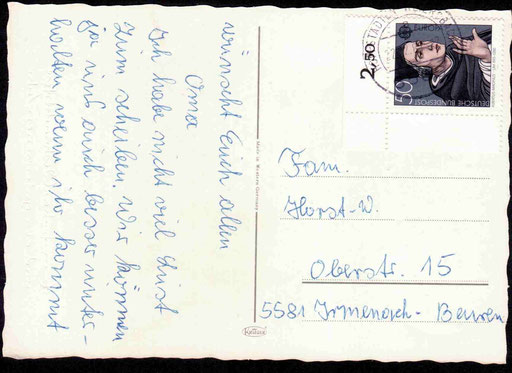 wünscht Euch allen
Oma
Ich habe nicht viel Lust
zum schreiben. Wir können
ja uns auch besser unter-
halten wenn ihr kommt
Made in Western Germany
Krüger
2,50
50
DEUTSCHE BUNDESPOST
EUROPA
Fam.
Horst-W.
Oberstr. 15
5581 Irmenach-Beuren